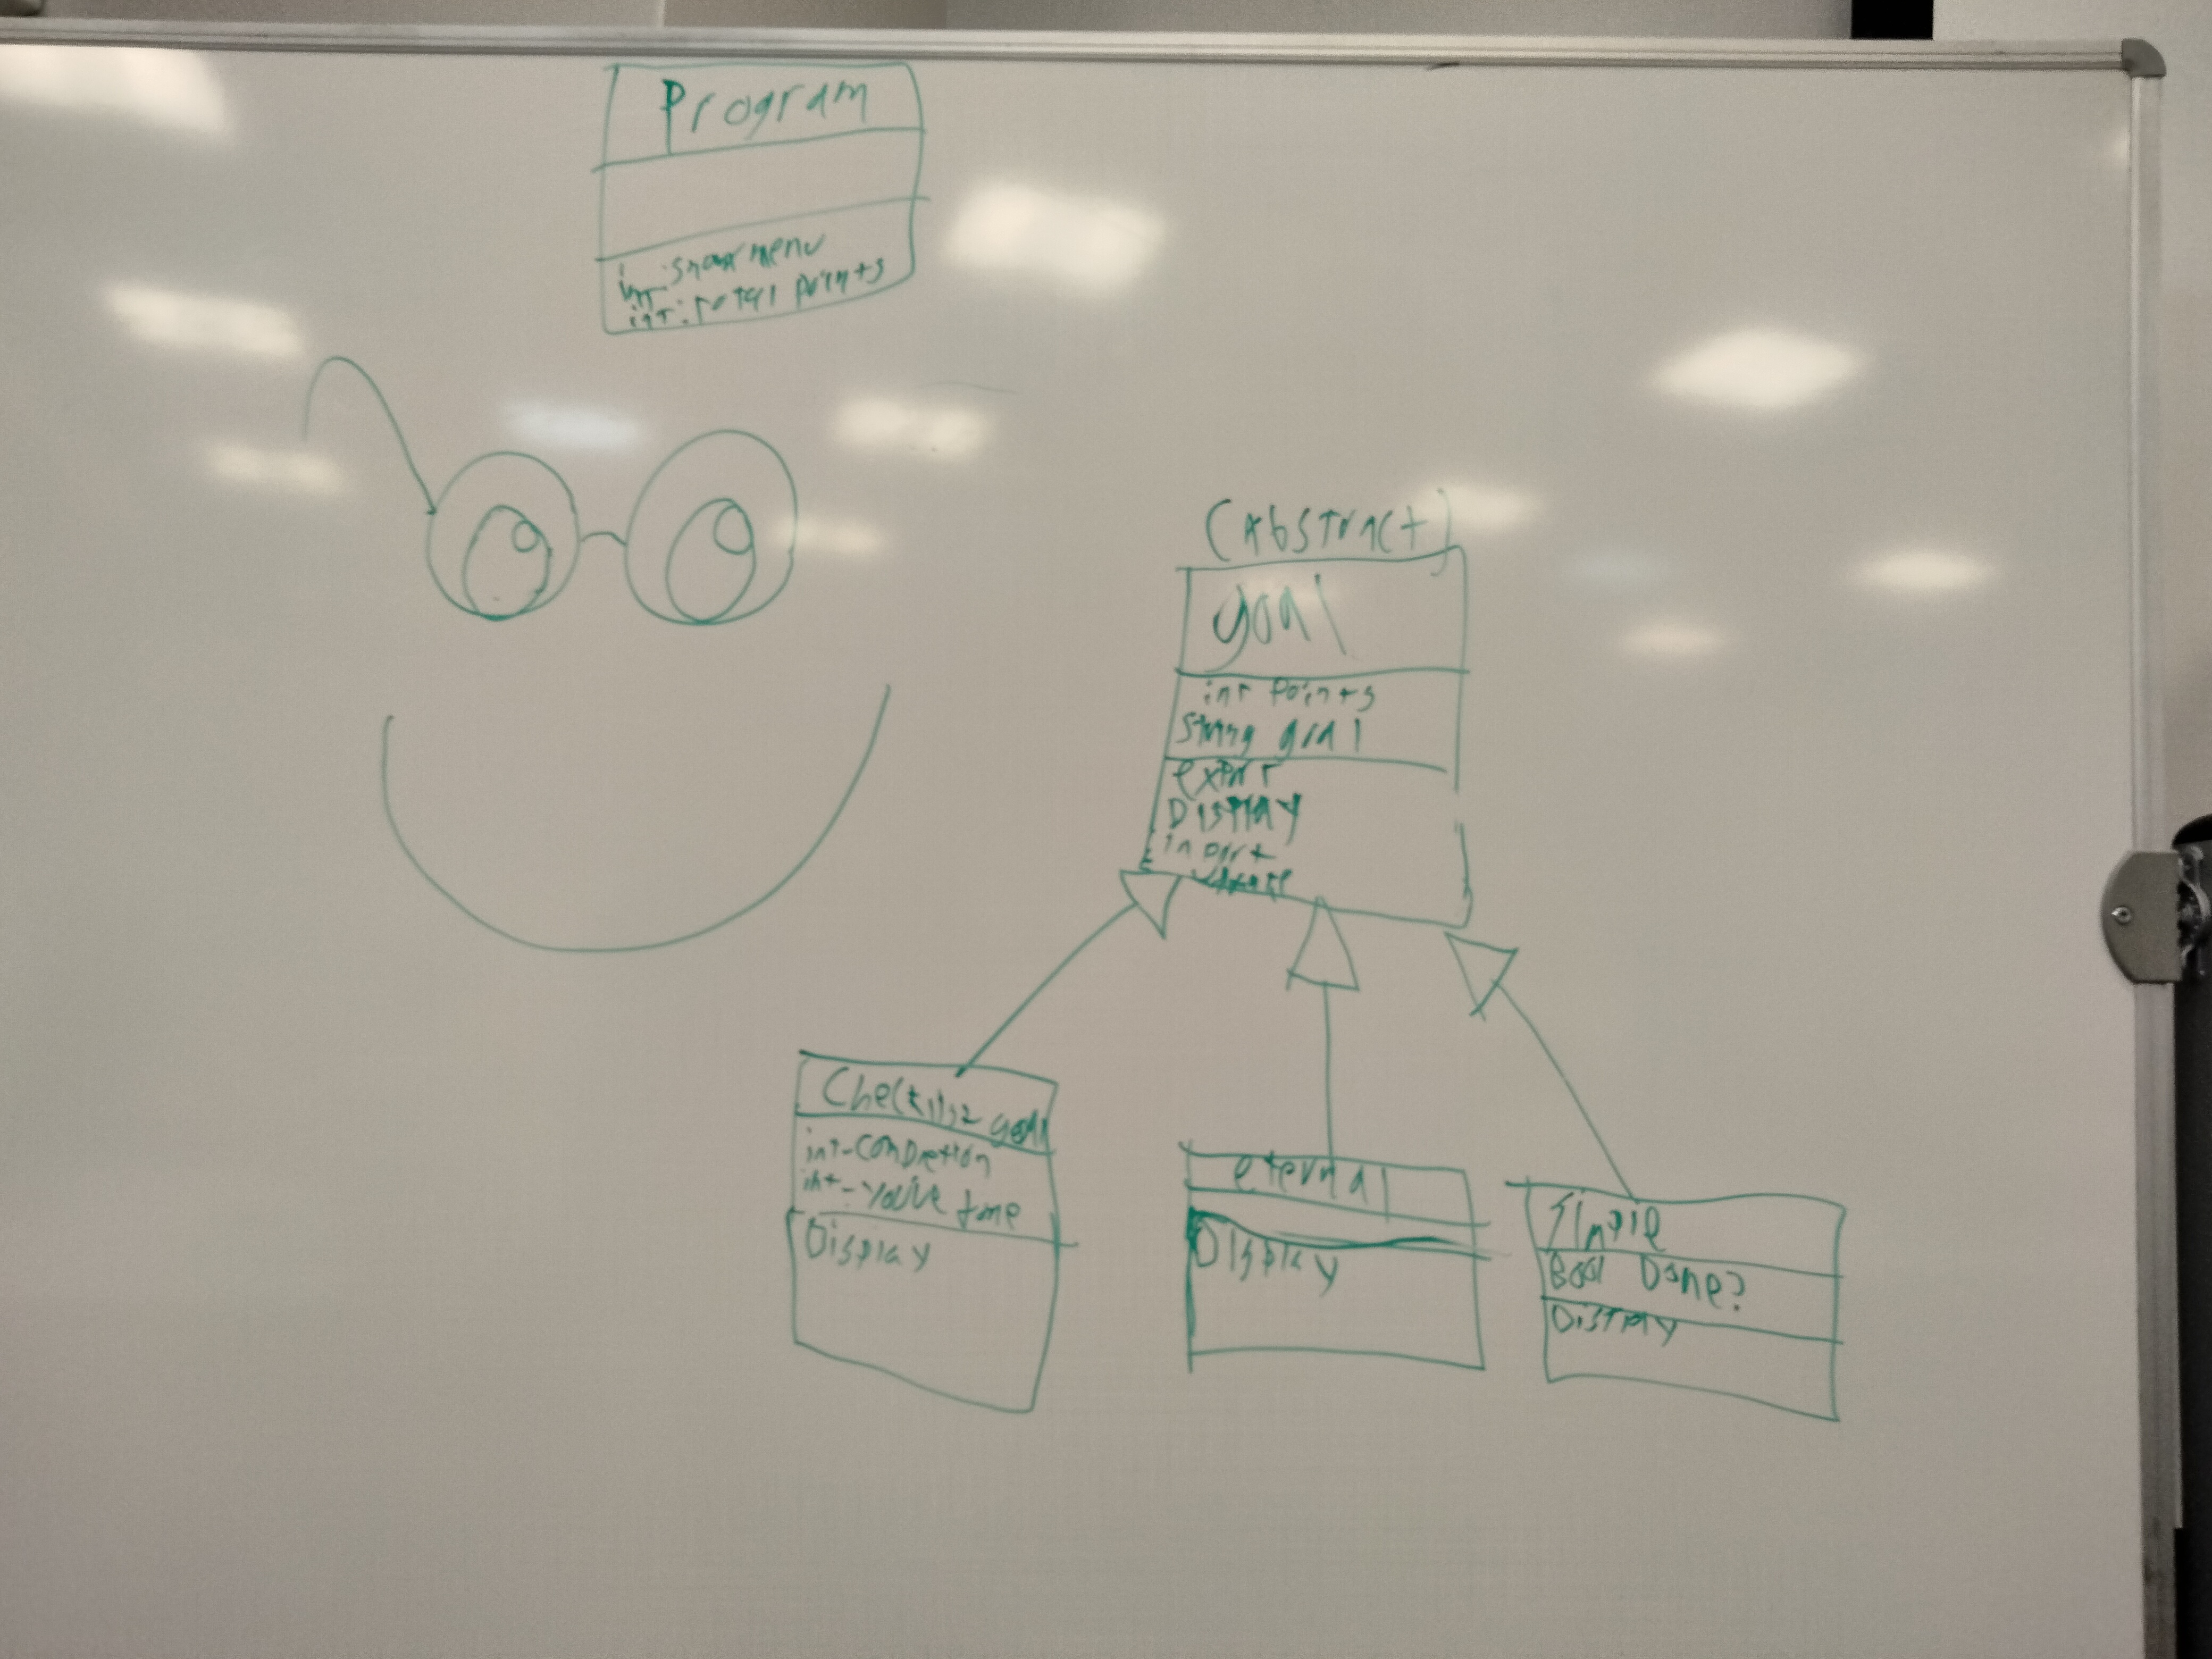 Program
int: show menu
int: total points
(Abstract)
goal
int points
string goal
export
Display
import
Checklist goal
int-completion
int-you've done
Display
eternal
Display
Simple
Bool Done?
Display